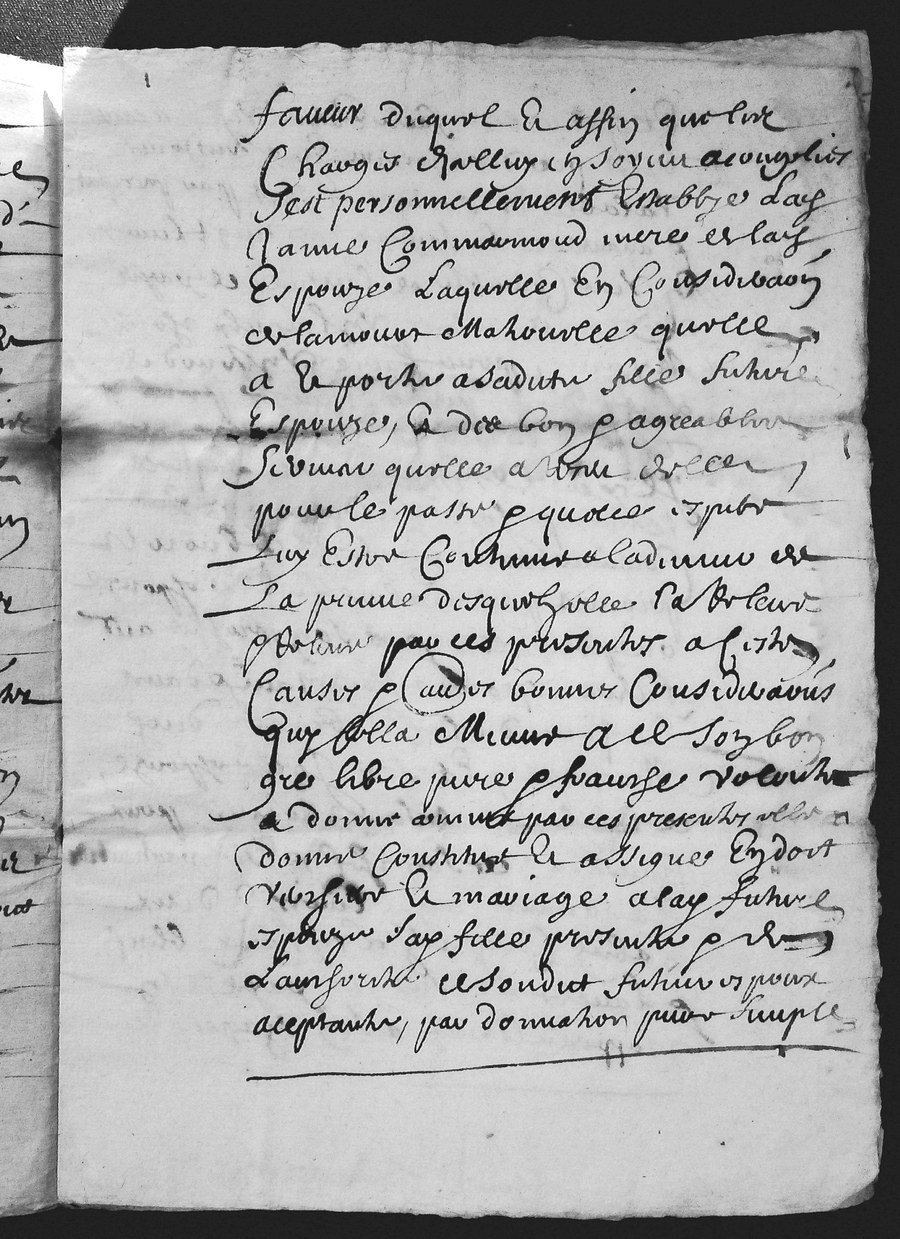 faveur duquel & affin que les
Charges d'icelluy
S'est personnellement Establye Lad
Janne Commarmond mere de lad
Espouze Laquelle En Consideraon
de lamour Maternelle quelle
a & porte a sadite fille future
Espouze, & des bon & agreables
Services quelle a delle
pour le passe & quelle espere
Luy Estre Continue a ladvenir de
La preuve desquelz elle la Releve
& Releve par ces presentes a Cestes
Causes & au(tr)es bonnes Consideraons
Quy bella Mienne de son bon
gre libre pure & franche volonte
a donne comme par ces presentes elle
donne Constitue & assigne En dot
verchere & mariage a lad future
espouze sad fille presente & de
Lauthorite de sondit futur espoux
aceptante, par donnation pure simple